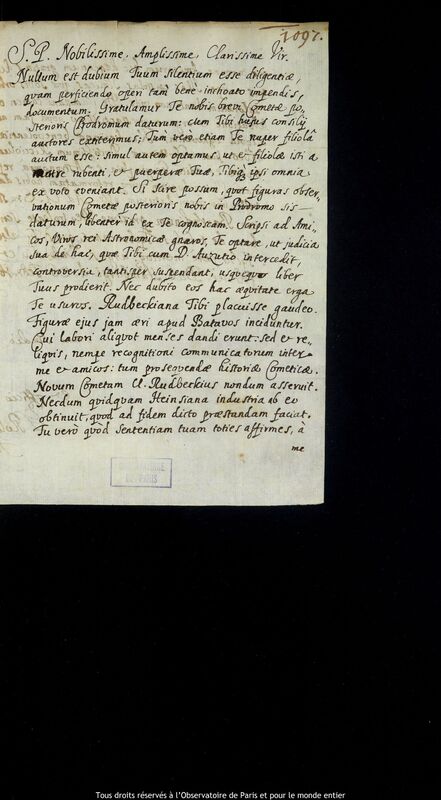 1097.
S. P. Nobilissime, Amplissime, Clarissime Vir.
Nullum est dubium Tuum silentium esse diligentiæ,
quam perficiendo operi tam bene inchoato impendis,
documentum. Gratulamur Te nobis brevi Cometæ po-
sterioris Prodromum daturum: cum Tibi hujus consilij
auctores extiterimus; Tum verò etiam Te nuper filiolâ
auctum esse: simul autem optamus, ut & filiolæ isti a
matre rubenti, & puerperæ Tuæ, Tibiq; ipsi omnia
ex voto eveniant. Si scire possum, quot figuras obser-
vationum Cometæ posterioris nobis in Prodromo sis
daturum, libenter id ex Te cognoscam. Scripsi ad Ami-
cos, Viros rei Astronomicæ gnaros, Te optare, ut judicia
sua de hac, quæ Tibi cum D. Auzutio intercedit,
controversia, tantisper suspendant, usquequo liber
Tuus prodierit. Nec dubito eos hac æquitate erga
Te usuros. Rudbeckiana Tibi placuisse gaudeo.
Figuræ ejus jam æri apud Batavos inciduntur.
Cui labori aliquot menses dandi erunt: sed & re-
liquis, nempe recognitioni communicatorum inter
me & amicos: tum prosequendæ historiæ Cometicæ.
Novum Cometam Cl. Rudbeckius nondum asseruit.
Necdum quidquam Heinsiana industria ab eo
obtinuit, quod ad fidem dicto præstandam faciat.
Tu verò quòd sententiam tuam toties affirmes, à
me
OBSERVATOIRE
DE PARIS
Tous droits réservés à l'Observatoire de Paris et pour le monde entier